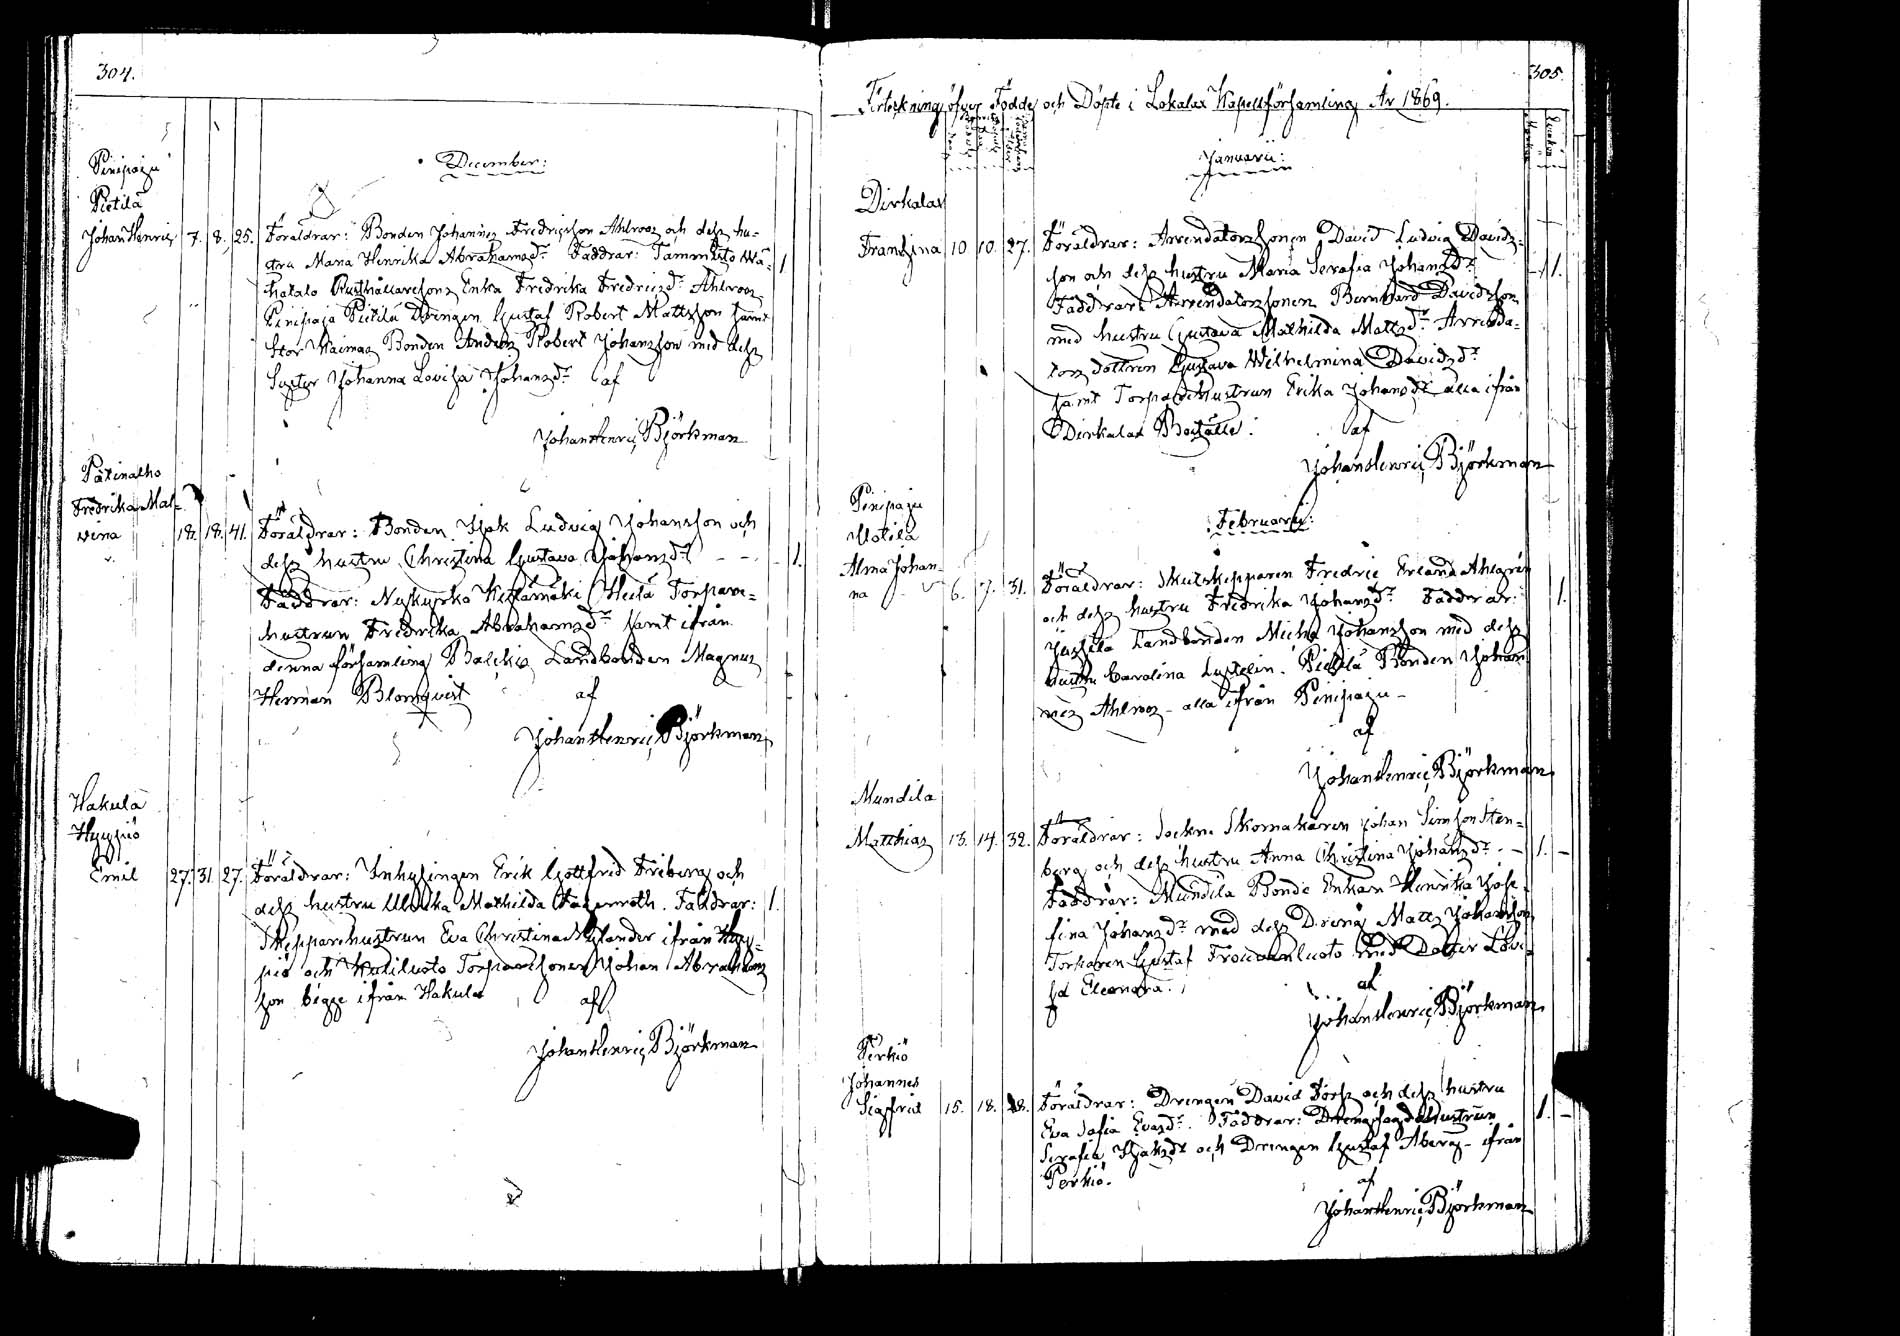 304.
December:
Pinipaju
Pietilä
Johan Henric 7. 8. 25. Föräldrar: Bonden Johannes Fredricsson Ahlroos och dess hu-
stru Maria Henrika Abrahamsdr Faddrar: Tammisto Wä-
hätalo Rusthållaresons Enka Fredrika Fredricsdr Ahlroos 1.
Pinipaju Pietilä Drengen Gustaf Robert Mattsson samt
Stor Waimas Bonden Anders Robert Johansson med dess
Syster Johanna Lovisa Johansdr af
Johan Henric Björkman
Pätinalho
Fredrika Mal-
vina 18. 18. 41. Föräldrar: Bonden Isak Ludvig Johansson och
dess hustru Christina Gustava Johansdr - - 1.
Faddrar: Nykyrko Ketarmäki Heilä Torpare-
hustrun Fredrika Abrahamsdr samt ifrån
denna församling Balckis Landbonden Magnus
Herman Blomqvist af
Johan Henric Björkman
Hakula
Hyypiö
Emil 27. 31. 27. Föräldrar: Inhysingen Erik Gottfrid Friberg och
dess hustru Ulrika Mathilda Fagerroth. Faddrar: 1.
Skepparehustrun Eva Christina Nylander ifrån Hyy-
piö och Kutiluoto Torparesonen Johan Abrahams
son bägge ifrån Hakula af
Johan Henric Björkman
305.
Förteckning öfver Födde och Döpte i Lokalax Kapellförsamling År 1869.
Januarii:
Dirkalax
Fransina 10 10. 27. Föräldrar: Arrendatorssonen David Ludvig Davids-
son och dess hustru Maria Serafia Johansdr - 1.
Faddrar: Arrendatorssonen Bernhard Davidsson
med hustru Gustava Mathilda Mattsdr Arrenda-
tors dottren Gustava Wilhelmina Davidsdr
samt Torparehustrun Erika Johansdr alla ifrån
Dirkalax Boställe. af
Johan Henric Björkman
Februarii:
Pinipaju
Uotila
Alma Johan-
na 6. 7. 31. Föräldrar: Skutskepparen Fredric Erland Ahlgrén
och dess hustru Fredrika Johansdr Faddrar: 1.
Jussila Landbonden Micha Johansson med dess
hustru Carolina Lustelin. Pietilä Bonden Johan
nes Ahlroos - alla ifrån Pinipaju -
af
Johan Henric Björkman
Mundila
Matthias 13. 14. 32. Föräldrar: Sockne Skomakaren Johan Simson Sten-
berg och dess hustru Anna Christina Johansdr - 1. -
Faddrar: Mundila Bonde Enkan Henrika Jose-
fina Johansdr med dess Dreng Matts Johansson
Torparen Gustaf Trouvanluoto med Dotter Lovi-
sa Eleonora. af
Johan Henric Björkman
Perkiö
Johannes
Sigfrid 15. 18. 28. Föräldrar: Drengen David Fors och dess hustru
Eva Sofia Evasdr. Faddrar: Drengfogdehustrun 1. -
Serafia Isaksdr och Drengen Gustaf Åberg - ifrån
Perkiö. af
Johan Henric Björkman